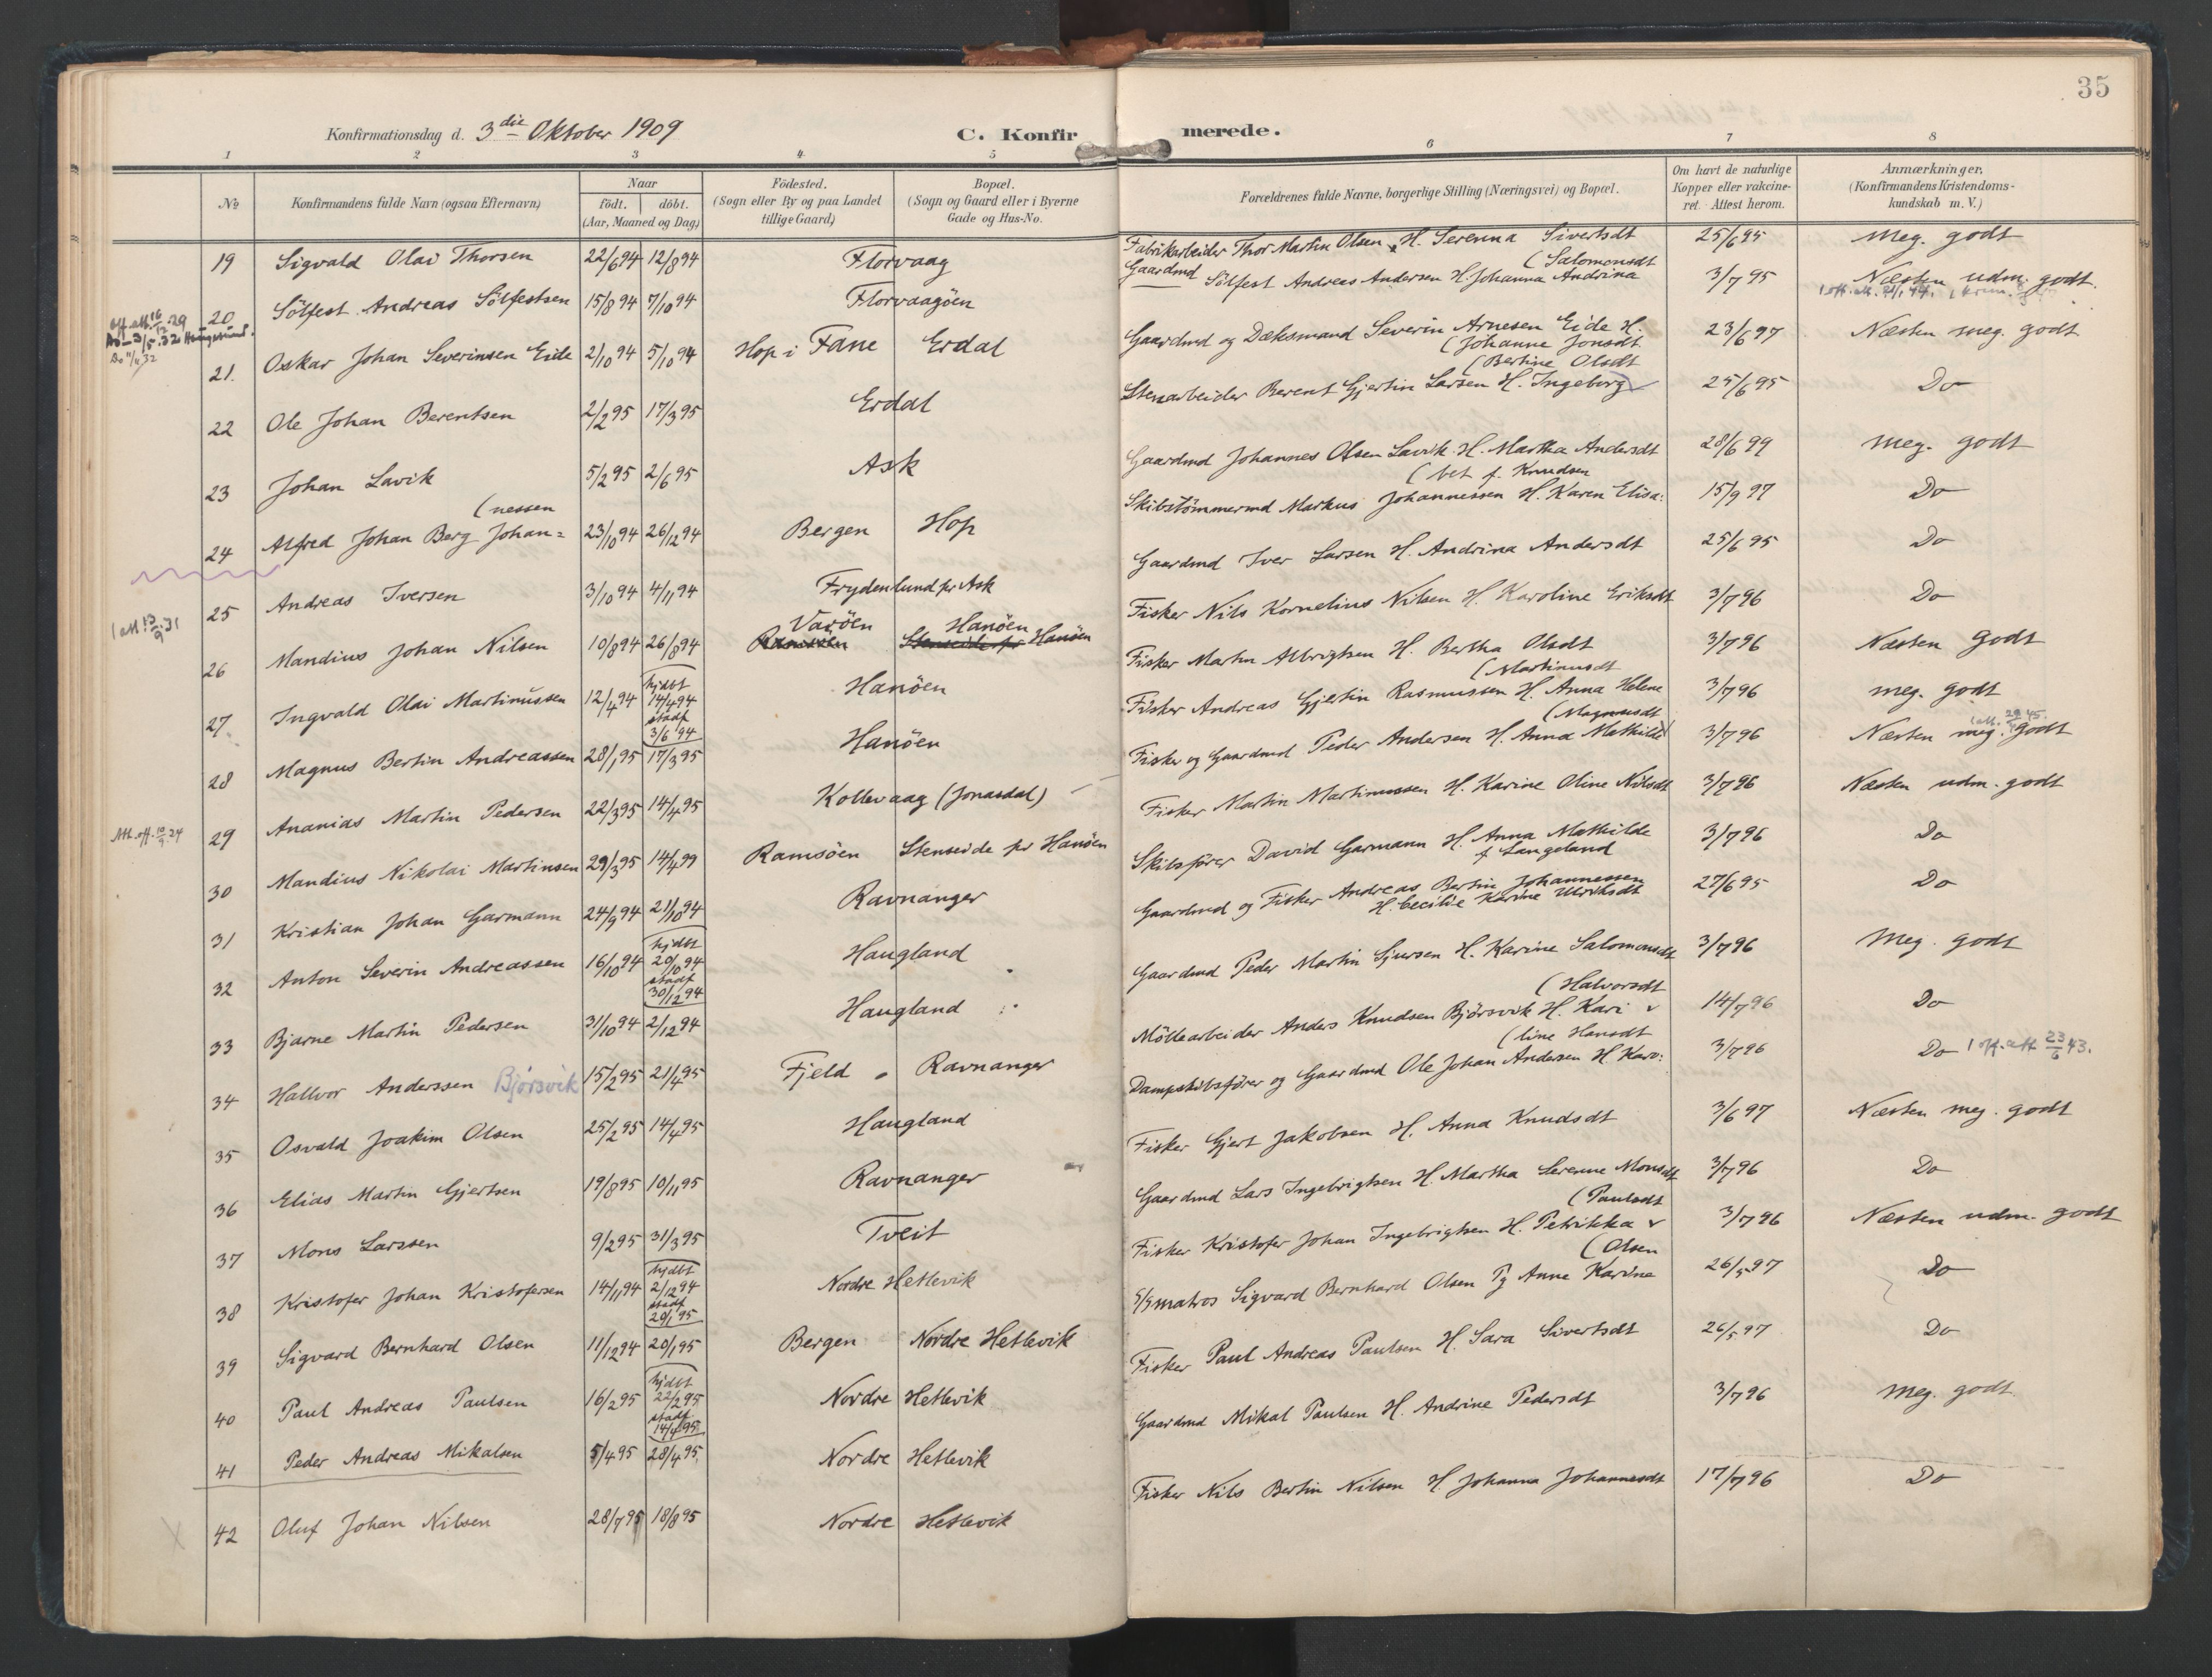 35
Konfirmationsdag d. 3die Oktober 1909
C. Konfirmerede.
1 2 3 4 5 6 7 8
No
Konfirmandens fulde Navn (ogsaa Efternavn)
Naar
födt. döbt.
(Aar, Maaned og Dag)
Födested.
(Sogn eller By og paa Landet
tillige Gaard)
Bopæl.
(Sogn og Gaard eller i Byerne
Gade og Hus-No.
Forældrenes fulde Navne, borgerlige Stilling (Næringsvei) og Bopæl.
Om havt de naturlige
Kopper eller vakcine-
ret. Attest herom.
Anmærkninger.
(Konfirmandens Kristendoms-
kundskab m. V.)
19 Sigvald Olai Thorsen 22/6 94 12/8 94 Florvaag Fabrikarbeider Thor Martin Olsen, H. Serenna Sivertsdt 25/6 95 Meg. godt
(Salomonsdt
20 Sölfest Andreas Sölfestsen 15/8 94 7/10 94 Florvaagöen Gaardmd Sölfest Andreas Andersen H. Johanna Andrina 3/7 95 Næsten udm. godt.
off. att. 16/12 29
Do 3/5 32
Do 11/11 32
21. Oskar Johan Severinsen Eide 2/10 94 5/10 94 Hop i Fane Erdal Gaardmd og Dæksmand Severin Arnesen Eide H. 23/6 97 Næsten meg. godt
(Johanne Jonsdt
(Bertine Olsdt
22 Ole Johan Berentsen 2/2 95 17/3 95 Erdal Stenarbeider Berent Gjertin Larsen H. Ingeborg 25/6 95 Do
23 Johan Lavik 5/2 95 2/6 95 Ask Gaardmd Johannes Olsen Lavik H. Martha Andersdt 28/6 99 Meg. godt
(bet f. Knudsen
(nessen
24 Alfred Johan Berg Johan= 23/10 94 26/12 94 Bergen Hop Skibstömmermd Markus Johannessen H. Karen Elisa: 15/9 97 Do
25 Andreas Iversen 3/10 94 4/11 94 Frydenlund pr Ask Gaardmd Iver Larsen H. Andrina Andersdt 25/6 95 Do
1 att 13/9 31
26 Mandius Johan Nilsen 10/8 94 26/8 94 Varöen Ramsöen Hanöen Stenseide pr Hanöen Fisker Nils Kornelius Nilsen H. Karoline Eriksdt 3/7 96 Do
27. Ingvald Olai Martinussen 12/4 94 hjdbt 14/4 94 stadf 3/6 94 Hanöen Fisker Martin Albrigtsen H. Bertha Olsdt 3/7 96 Næsten Godt
(Martinusdt
28 Magnus Bertin Andreassen 28/1 95 17/3 95 Hanöen Fisker Andreas Gjertin Rasmussen H. Anna Helene 3/7 96 meg. godt
(Magnusdt
29 Ananias Martin Pedersen 22/3 95 14/4 95 Kollevaag (Jonasdal) Fisker og Gaardmd Peder Andersen H. Anna Mathilde 3/7 96 Næsten meg. godt
Att. off. 10/9 24
30 Mandius Nikolai Martinsen 29/3 95 14/4 99 Ramsöen Stenseide pr Hanöen Fisker Martin Martinussen H. Karine Oline Nilsdt 3/7 96 Næsten udm. godt
31 Kristian Johan Garmann 24/9 94 21/10 94 Ravnanger Skibsförer David Garmann H. Anna Mathilde 3/7 96 Do
f Langeland
32 Anton Severin Andreassen 16/10 94 hjdbt 20/10 94 stadf 30/12 94 Haugland Gaardmd og Fisker Andreas Bertin Johannessen 27/6 95 Do
H. Cecilie Karine Ulriksdt
33 Bjarne Martin Pedersen 31/10 94 2/12 94 Haugland Gaardmd Peder Martin Sjursen H. Karine Salomonsdt 3/7 96 Meg. godt
(Halvorsdt
34 Hallvor Anderssen Bjørsvik 15/2 95 21/4 95 Fjeld Ravnanger Möllearbeider Anders Knudsen Bjørsvik H. Kari 14/7 96 Do
(line Hansdt
35 Osvald Joakim Olsen 25/2 95 14/4 95 Haugland Dampskibsförer og Gaardmd Ole Johan Andersen H. Karo: 3/7 96 Do 1 off. att 23/6 43.
36 Elias Martin Gjertsen 19/8 95 10/11 95 Ravnanger Fisker Gjert Jakobsen H. Anna Knudsdt 3/6 97 Næsten meg. godt
37 Mons Larssen 9/2 95 31/3 95 Tveit Gaardmd Lars Ingebrigtsen H. Martha Serenne Monsdt 3/7 96 Do
(Paulsdt
38 Kristofer Johan Kristofersen 14/11 94 hjdbt 2/12 94 stadf 20/1 95 Nordre Hetlevik Fisker Kristofer Johan Ingebrigtsen H. Petrikka 3/7 96 Næsten udm. godt
(Olsen
39 Sigvard Bernhard Olsen 11/12 94 20/1 95 Bergen Nordre Hetlevik S/S matros Sigvard Bernhard Olsen Pg Anne Karine 26/5 97 Do
40 Paul Andreas Paulsen 16/2 95 hjdbt 22/2 95 stadf. 14/4 95 Nordre Hetlevik Fisker Paul Andreas Paulsen H. Sara Sivertsdt 26/5 97 Do
41 Peder Andreas Mikalsen 5/4 95 28/4 95 Nordre Hetlevik Gaardmd Mikal Paulsen H. Andrine Pedersdt 3/7 96 Meg. godt
42 Oluf Johan Nilsen 28/7 95 18/8 95 Nordre Hetlevik Fisker Nils Bertin Nilsen H. Johanna Johannesdt 17/7 96 Do